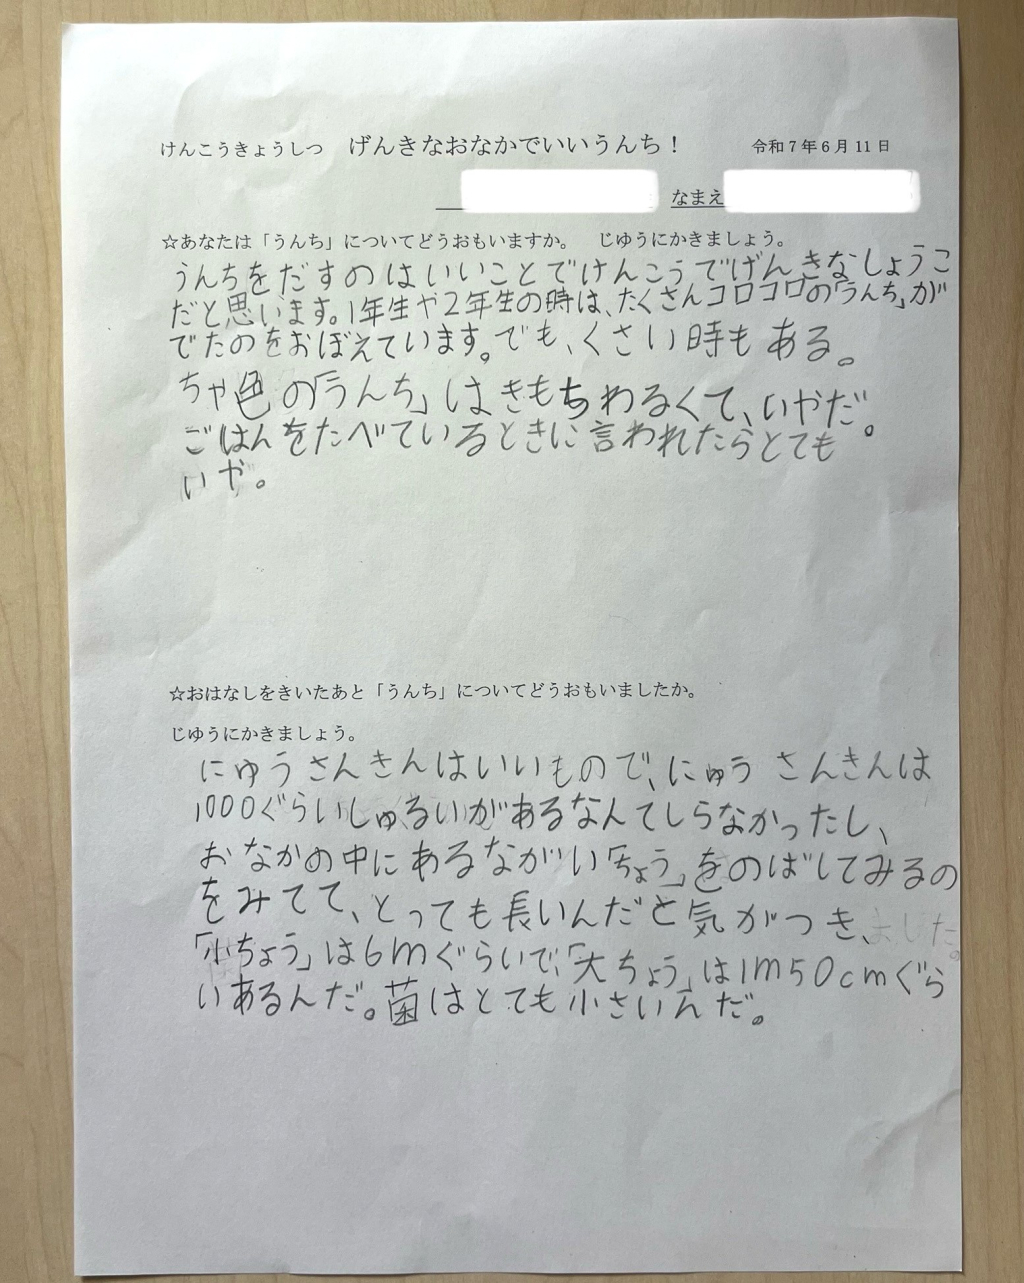 けんこうきょうしつ　げんきなおなかでいいうんち！　令和7年6月11日
なまえ
☆あなたは「うんち」についてどうおもいますか。　じゆうにかきましょう。
うんちをだすのはいいことでけんこうでげんきなしょうこ
だと思います。1年生や2年生の時は、たくさんコロコロの「うんち」が
でたのをおぼえています。でも、くさい時もある。
ちゃ色の「うんち」はきもちわるくて、いやだ。
ごはんをたべているときに言われたらとても
いや。
☆おはなしをきいたあと「うんち」についてどうおもいましたか。
じゆうにかきましょう。
にゅうさんきんはいいもので、にゅうさんきんは
1000ぐらいしゅるいがあるなんてしらなかったし、
おなかの中にあるながい「ちょう」をのばしてみるの
をみてて、とっても長いんだと気がつき、ました。
「小ちょう」は6mぐらいで、「大ちょう」は1m50cmぐら
いあるんだ。菌はとても小さいんだ。